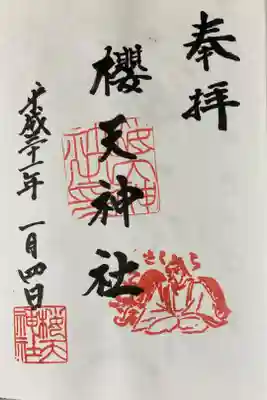 奉拝
櫻天神社
さくら
平成三十一年 一月四日